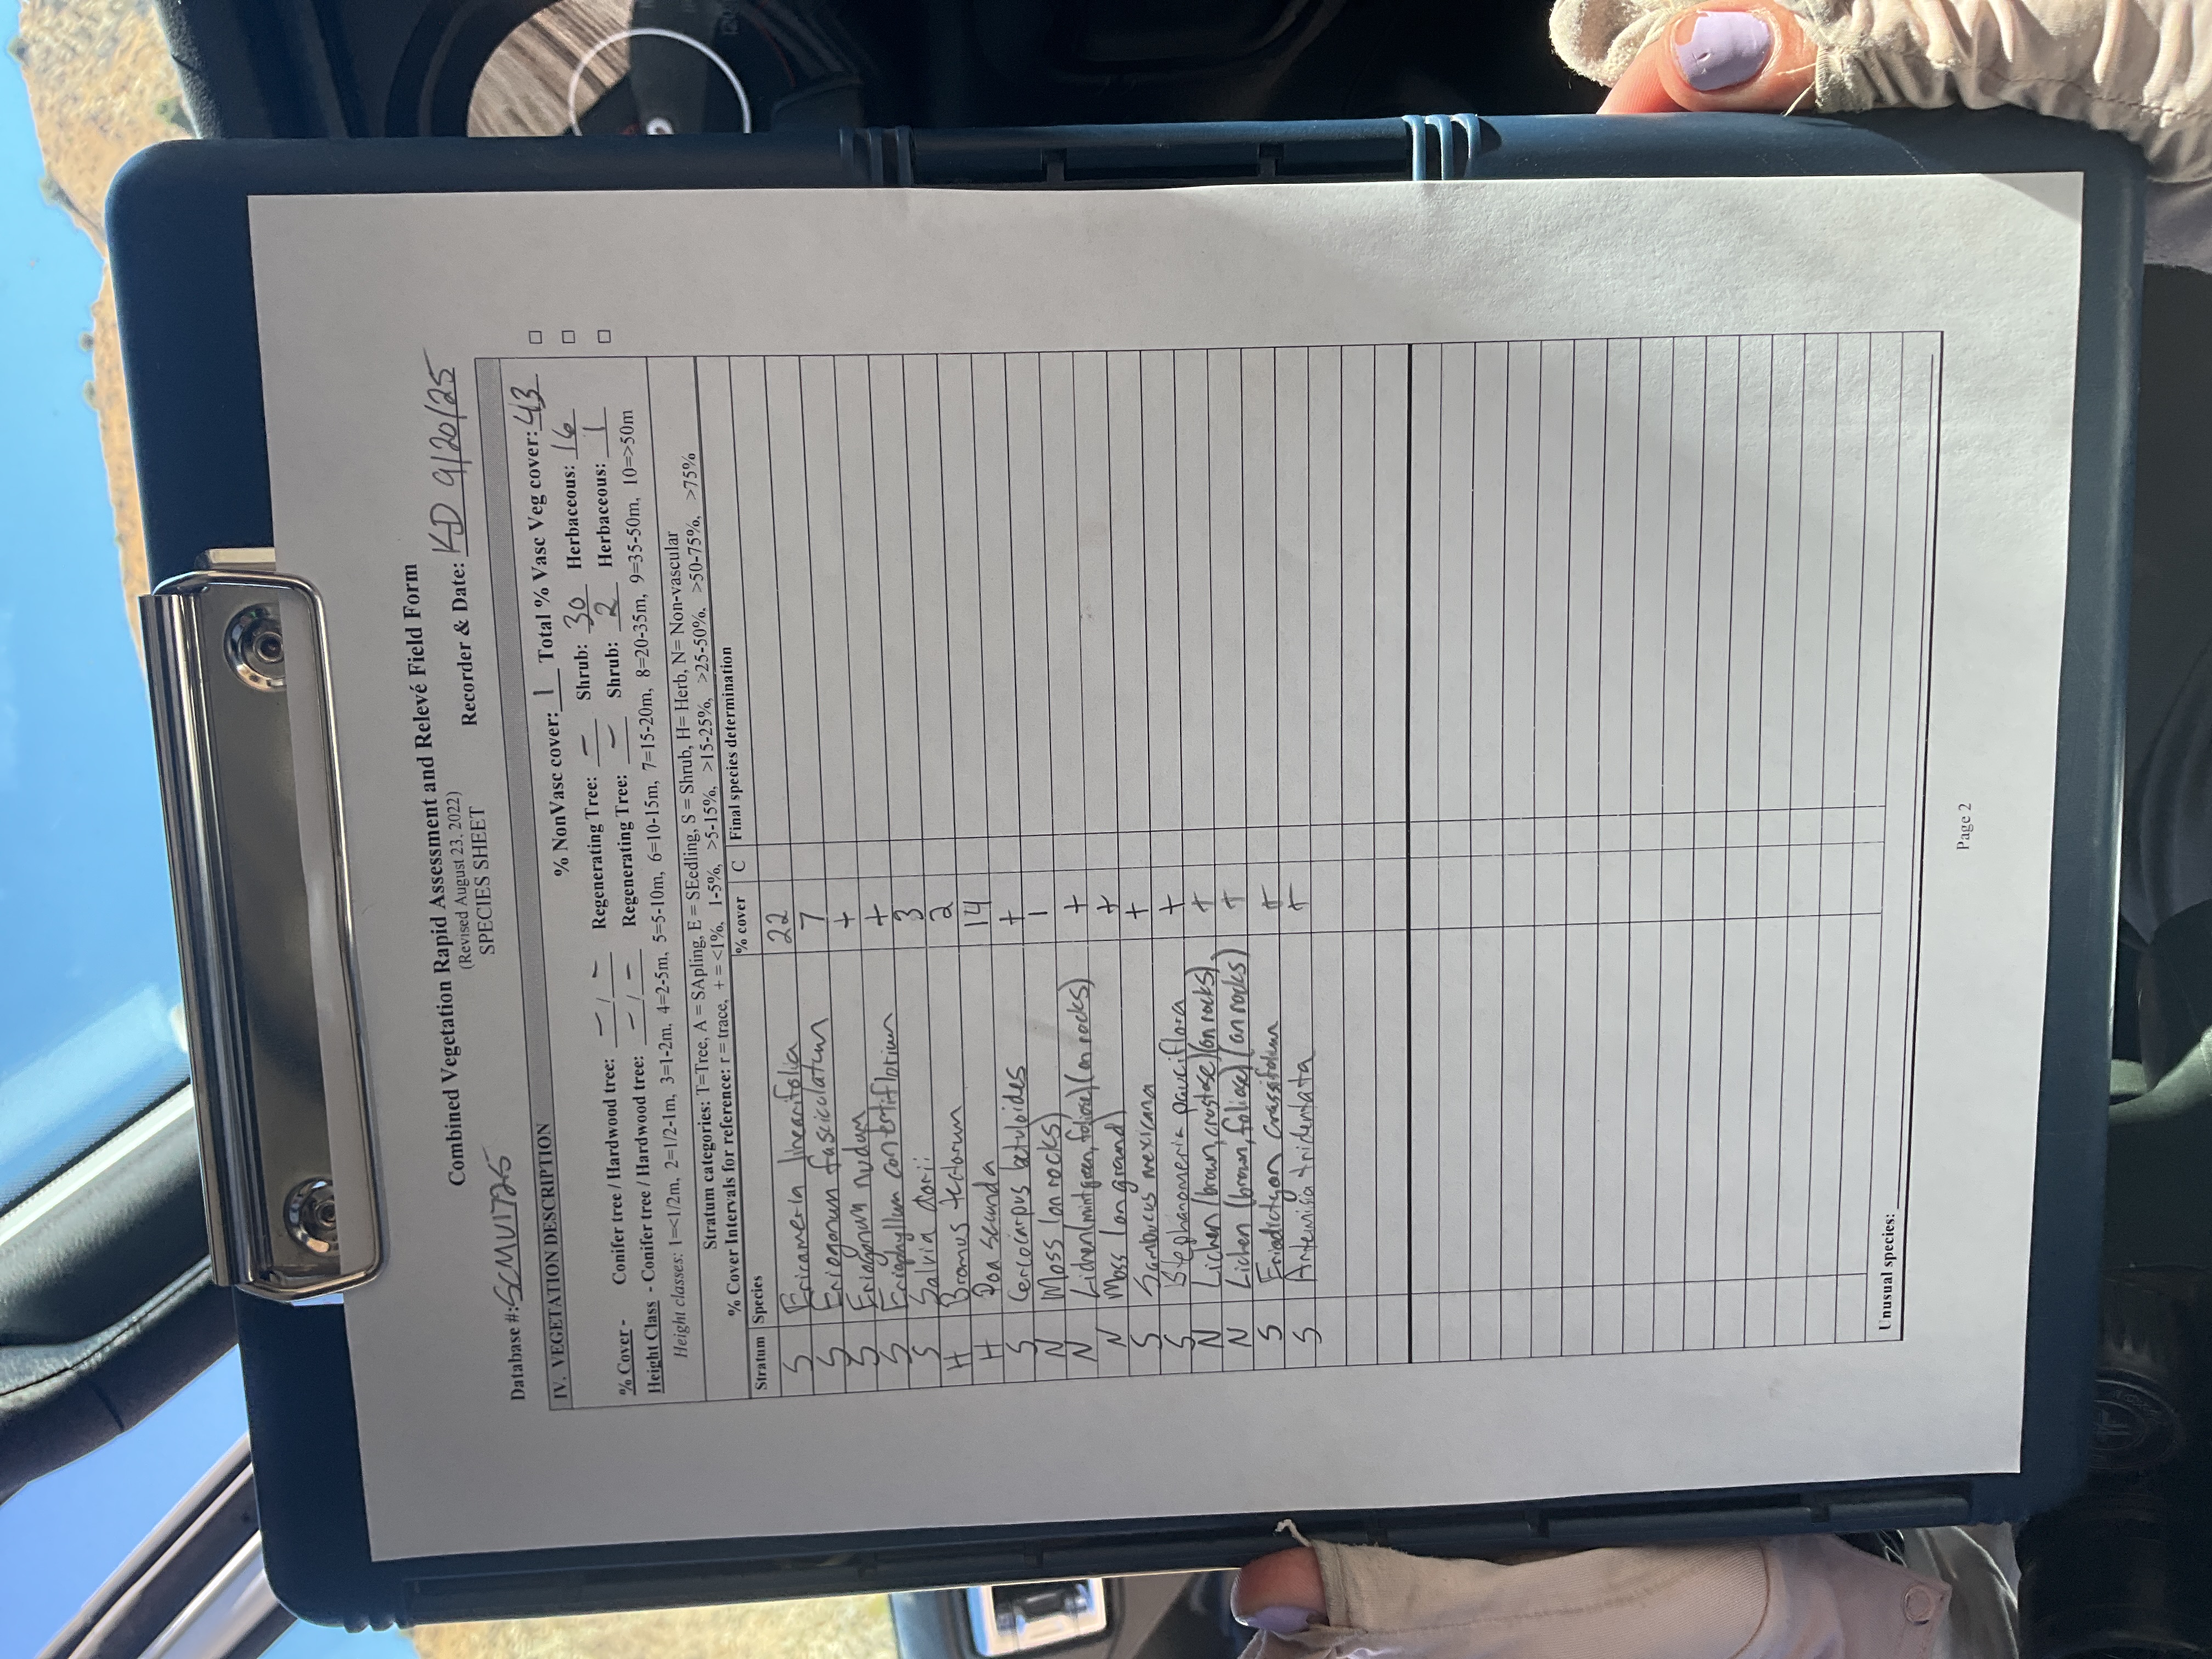 Combined Vegetation Rapid Assessment and Relevé Field Form
(Revised August 23, 2022)
SPECIES SHEET
Database #: Recorder & Date: KJD 9/20/25
IV. VEGETATION DESCRIPTION
% NonVasc cover: 1 Total % Vasc Veg cover: 43
% Cover - Conifer tree / Hardwood tree: - / - Regenerating Tree: - Shrub: 30 Herbaceous: 16
Height Class - Conifer tree / Hardwood tree: - / - Regenerating Tree: - Shrub: 2 Herbaceous: 1
Height classes: 1=<1/2m, 2=1/2-1m, 3=1-2m, 4=2-5m, 5=5-10m, 6=10-15m, 7=15-20m, 8=20-35m, 9=35-50m, 10=>50m
Stratum categories: T=Tree, A = SApling, E = SEedling, S = Shrub, H= Herb, N= Non-vascular
% Cover Intervals for reference: r = trace, + = <1%, 1-5%, >5-15%, >15-25%, >25-50%, >50-75%, >75%
Stratum Species % cover C Final species determination
S Ericameria linearifolia 22
S Eriogonum fasciculatum 7
S Eriogonum nudum +
S Eriophyllum confertiflorium +
S Salvia dorii 3
H Bromus tectorum 2
H Poa secunda 14
S Cercocarpus betuloides +
N Moss (on rocks) 1
N Lichen (mint green, foliose) (on rocks) +
N Moss (on ground) +
S Sambucus mexicana +
S Stephanomeria pauciflora +
N Lichen (brown, crustose) (on rocks) +
N Lichen (brown, foliose) (on rocks) +
S Eriodictyon crassifolium +
S Artemisia tridentata +
Unusual species:
Page 2